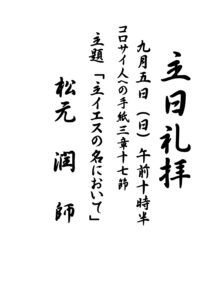 主日礼拝
九月五日（日）午前十時半
コロサイ人への手紙三章十七節
主題「主イエスの名において」
松元　潤　師